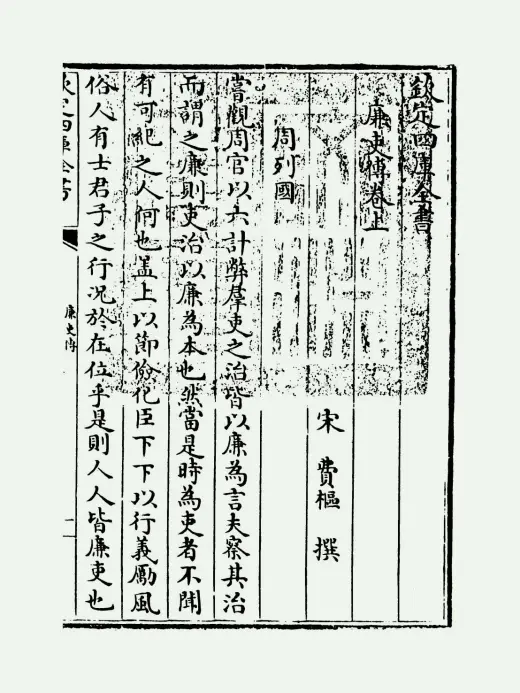 欽定四庫全書
廉吏傳卷上
宋 費樞 撰
周列國
嘗觀周官以六計弊羣吏之治皆以廉為言夫察其治
而謂之廉則吏治以廉為本也然當是時為吏者不聞
有可紀之人何也盖上以節儉化臣下下以行義厲風
俗人有士君子之行况於在位乎是則人人皆廉吏也
欽定四庫全書
廉吏傳
一